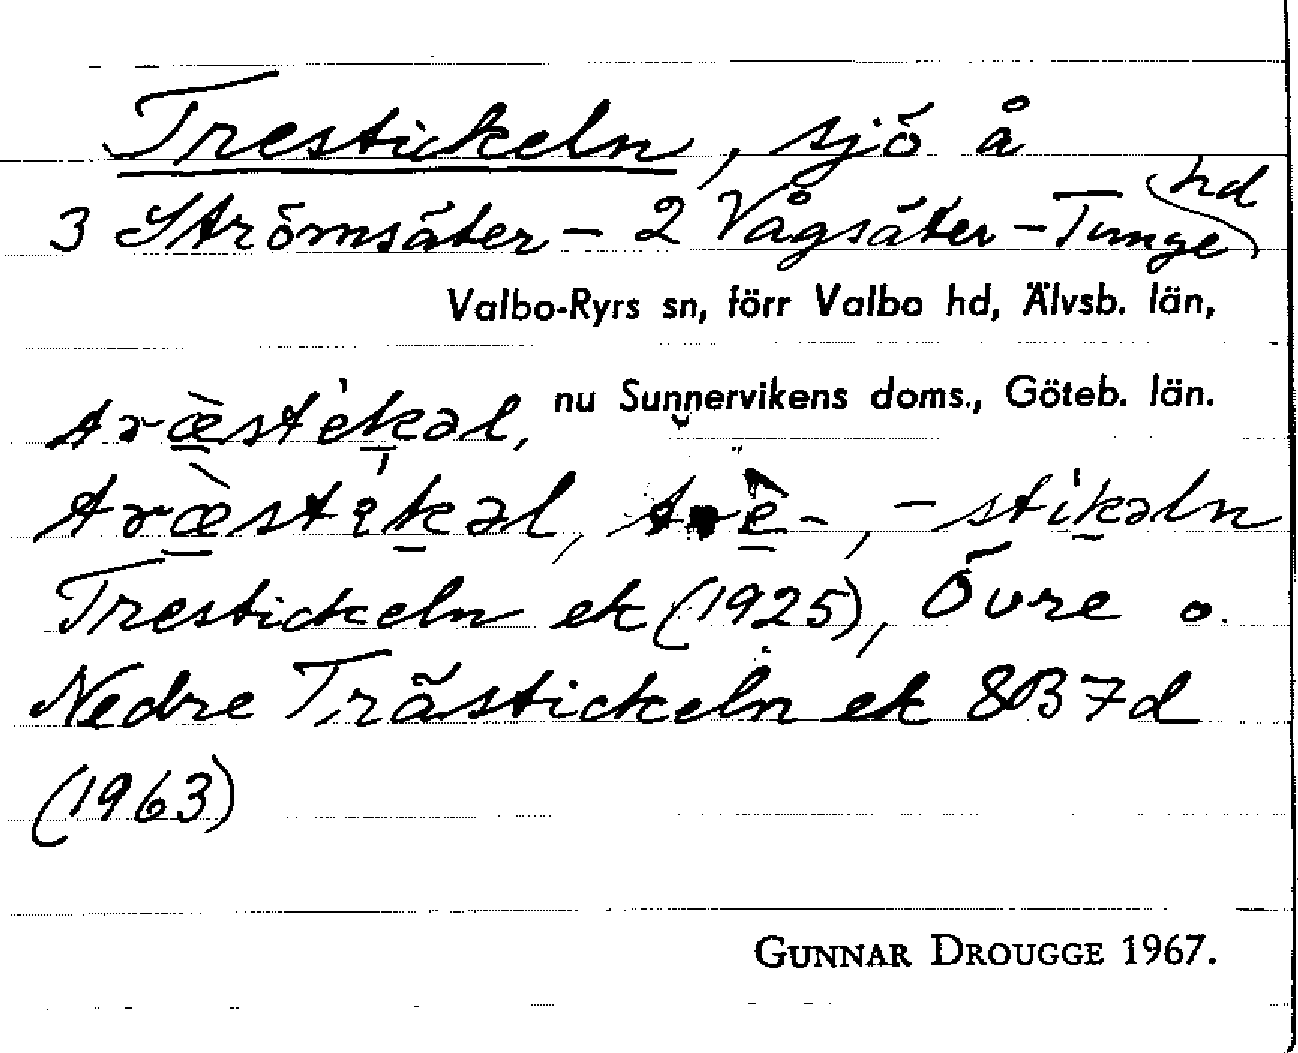 Trestickeln, sjö å
3 Strömsäter – 2 Vågsäter – Tunge hd
Valbo-Ryrs sn, förr Valbo hd, Älvsb. län,
nu Sunnervikens doms., Göteb. län.
træ̀stékəl,
træ̀stikəl, trè-, -stikəln
Trestickeln ek (1925), Övre o.
Nedre Trästickeln ek 8B7d
(1963)
GUNNAR DROUGGE 1967.